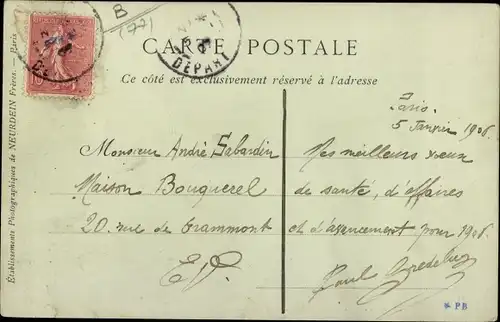 B
(77)
CARTE POSTALE
DÉPART
Ce côté est exclusivement réservé à l'adresse
Paris
5 Janvier 1906
Monsieur André Sabardin
Maison Bouquerel
20 rue de Grammont
E.V.
Mes meilleurs vœux
de santé, d'affaires
et d'avancement pour 1906.
Paul
* PB
Établissements Photographiques de NEURDEIN Frères. — Paris